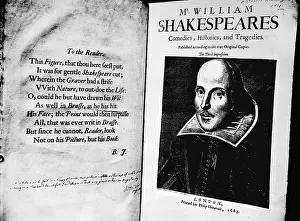 To the Reader.
This Figure, that thou here seest put,
It was for gentle Shakespeare cut;
Wherein the Graver had a strife
VVith Nature, to out-doe the Life:
O, could he but have drawn his Wit
As well in Brasse, as he has hit
His Face; the Print would then surpasse
All, that was ever writ in Brasse.
But since he cannot, Reader, look
Not on his Picture, but his Book.
B. J.
Mr. WILLIAM
SHAKESPEARES
Comedies, Histories, and Tragedies.
Published according to the true Original Copies.
The Third Impression.
LONDON,
Printed for Philip Chetwinde, 1663.